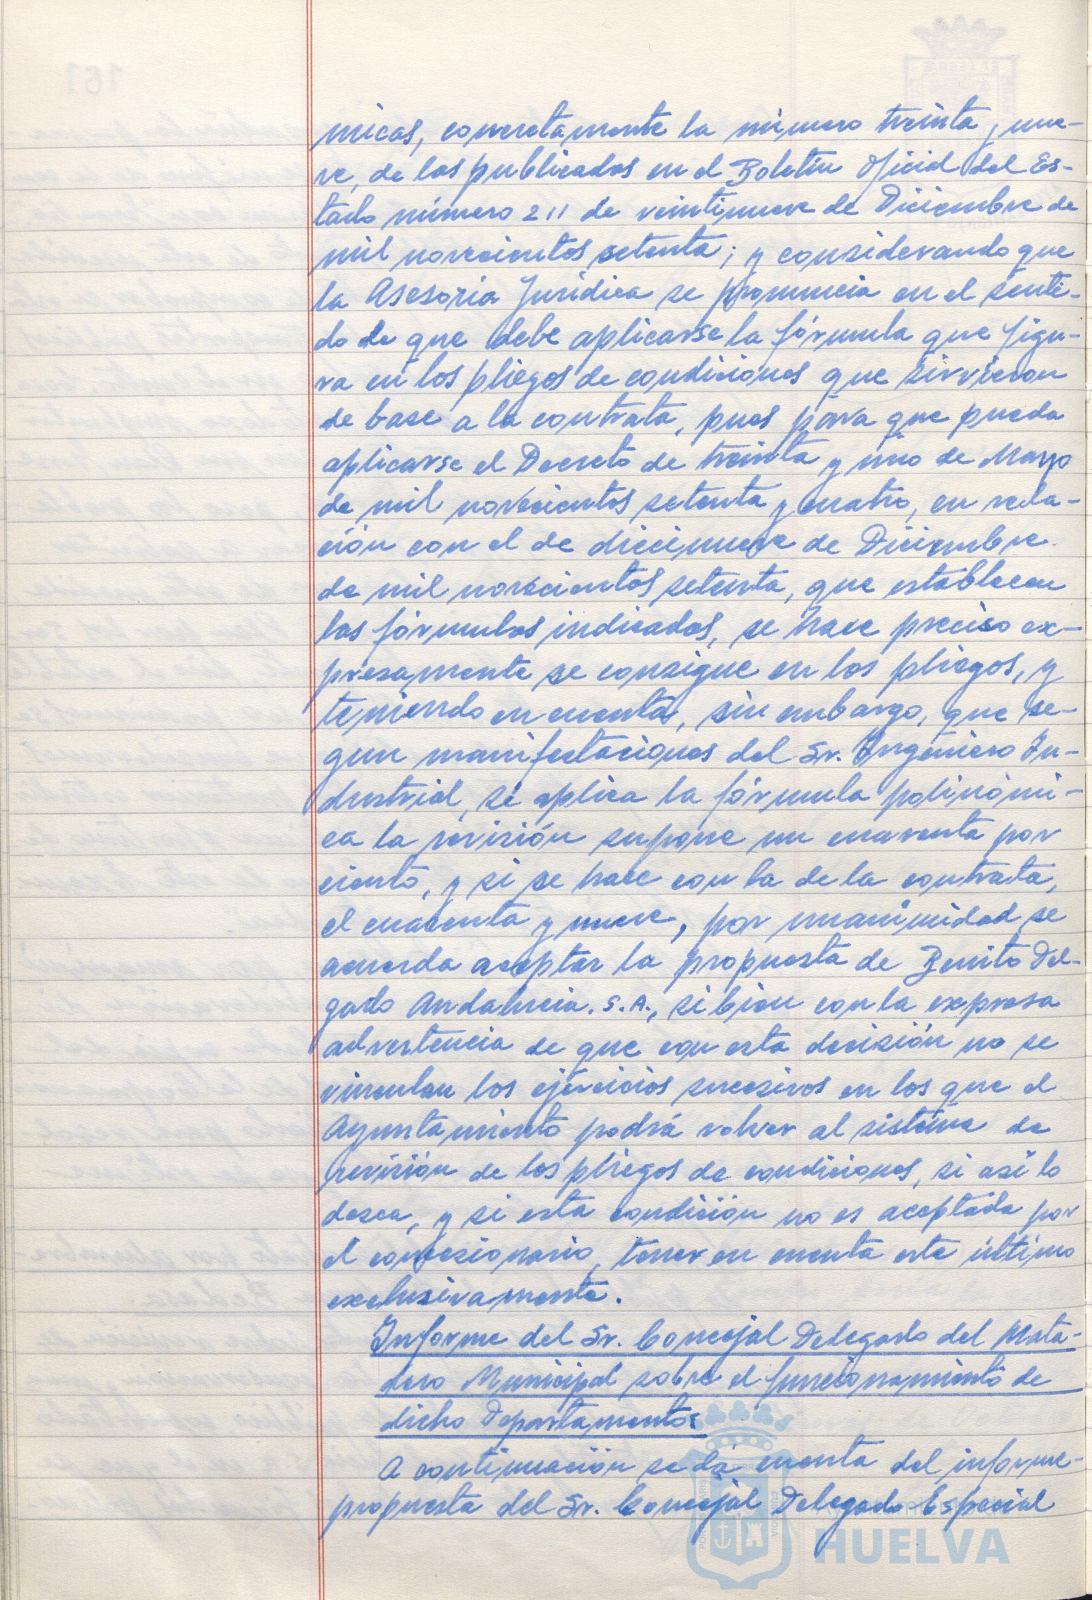 micas, concretamente la número treinta y nue-
ve, de las publicadas en el Boletín Oficial del Es-
tado número 211 de veintinueve de Diciembre de
mil novecientos setenta; y considerando que
la Asesoria Jurídica se pronuncia en el senti-
do de que debe aplicarse la fórmula que figu-
ra en los pliegos de condiciones que sirvieron
de base a la contrata, pues para que pueda
aplicarse el Decreto de treinta y uno de Mayo
de mil novecientos setenta y cuatro, en rela-
ción con el de diecinueve de Diciembre
de mil novecientos setenta, que establecen
las fórmulas indicadas, se hace preciso ex-
presamente se consigue en los pliegos, y
teniendo en cuenta, sin embargo, que se-
gun manifestaciones del Sr. Ingeniero In-
dustrial, si aplica la fórmula polinómi-
ca la revisión supone un cuarenta por
ciento, y si se hace con la de la contrata,
el cuarenta y nueve, por unanimidad se
acuerda aceptar la propuesta de Benito Del-
gado Andalucia. S.A., si bien con la expresa
advertencia de que con esta decisión no se
vinculan los ejercicios sucesivos en los que el
Ayuntamiento podrá volver al sistema de
revisión de los pliegos de condiciones, si así lo
desea, y si esta condición no es aceptada por
el concesionario, tener en cuenta este último
exclusivamente.
Informe del Sr. Concejal Delegado del Mata-
dero Municipal sobre el funcionamiento de
dicho Departamento:
A continuación se dá cuenta del informe-
propuesta del Sr. Concejal Delegado Especial
HUELVA